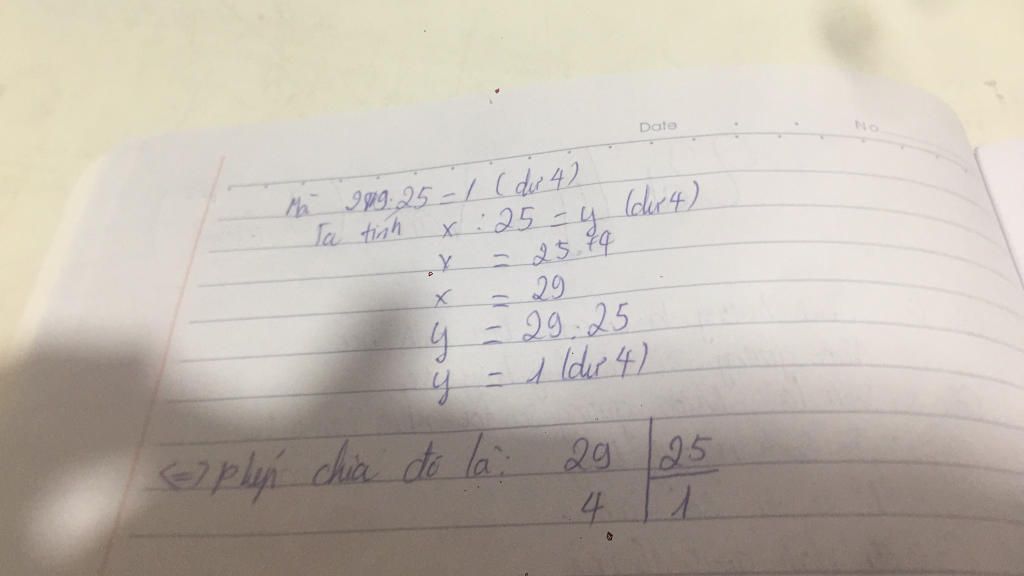 Date No
Mà 29:25 = 1 (dư 4)
Ta tính x : 25 = y (dư 4)
x = 25.+4
x = 29
y = 29:25
y = 1 (dư 4)
<=> phép chia đó là: 29 25
4 1